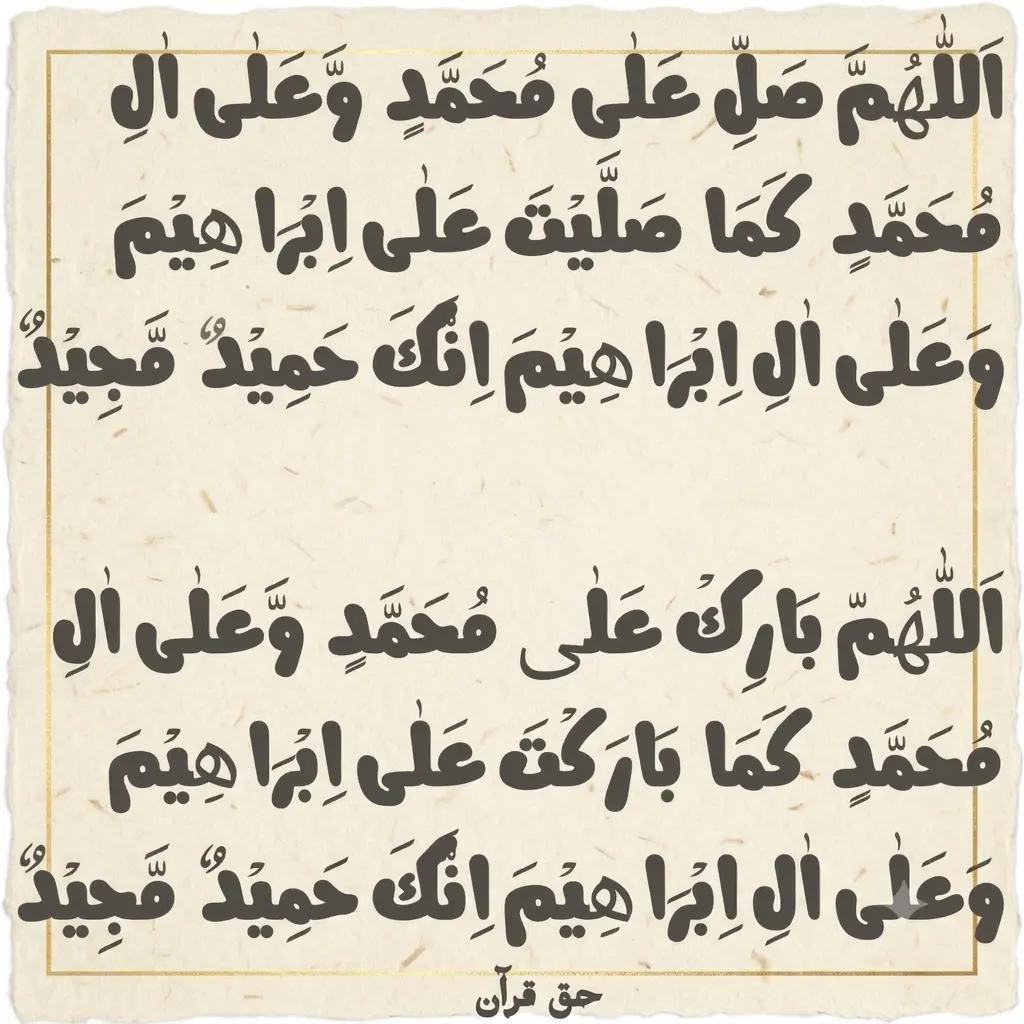 اَللّٰهُمَّ صَلِّ عَلٰى مُحَمَّدٍ وَّعَلٰى اٰلِ
مُحَمَّدٍ كَمَا صَلَّيْتَ عَلٰى اِبْرَا هِيْمَ
وَعَلٰى اٰلِ اِبْرَا هِيْمَ اِنَّكَ حَمِيْدٌ مَّجِيْدٌ
اَللّٰهُمّ بَارِكْ عَلٰى مُحَمَّدٍ وَّعَلٰى اٰلِ
مُحَمَّدٍ كَمَا بَارَكْتَ عَلٰى اِبْرَا هِيْمَ
وَعَلٰى اٰلِ اِبْرَا هِيْمَ اِنَّكَ حَمِيْدٌ مَّجِيْدٌ
حق قرآن